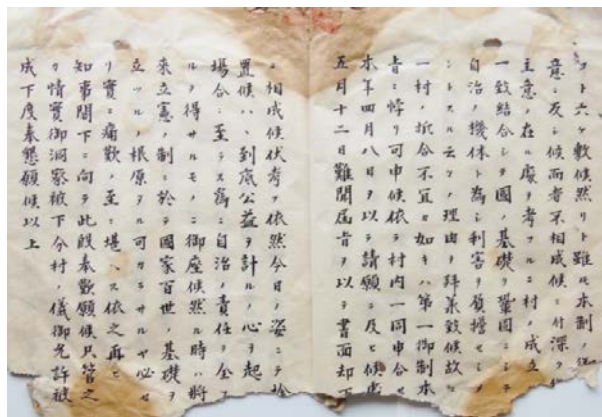 フト六ヶ敷候然リト雖ㇳモ本制ノ
意ニ反シ候而者不相成候ニ付深ク
主意ノ在ル處ヲ考フルニ村ノ成立
一致結合シテ國ノ基礎ヲ鞏固ニシテ
自治ノ機体ト為シ利害ヲ負擔セシメ
ントスル云々ノ理由ヲ拝承致候故ニ
一村ノ折合不宜如キハ第一御制本
旨ニ悖リ可申候依テ村内一同申合セ
本年四月八日ヲ以テ請願ニ及ヒ候處
五月十二日難聞届旨ヲ以テ書面却下
ニ相成候伏考フ依然今日ノ姿ニテ
置候ハヽ到底公益ヲ計ルノ心ヲ起
場合ニ至ラス為ニ自治ノ責任ヲ全フ
ルヲ得サルモノニ御座候然ル時ハ将
来立憲ノ制ニ於テ國家百世ノ基礎ヲ
立ツルノ根原ヲル可カラサルヤ必セ
リ實ニ痛歎ノ至ニ堪ヘス依之再ヒ
知事閣下ニ向テ此段奉歎願候只管之
情實御洞察被下分村ノ儀御允許被
成下度奉懇願候以上